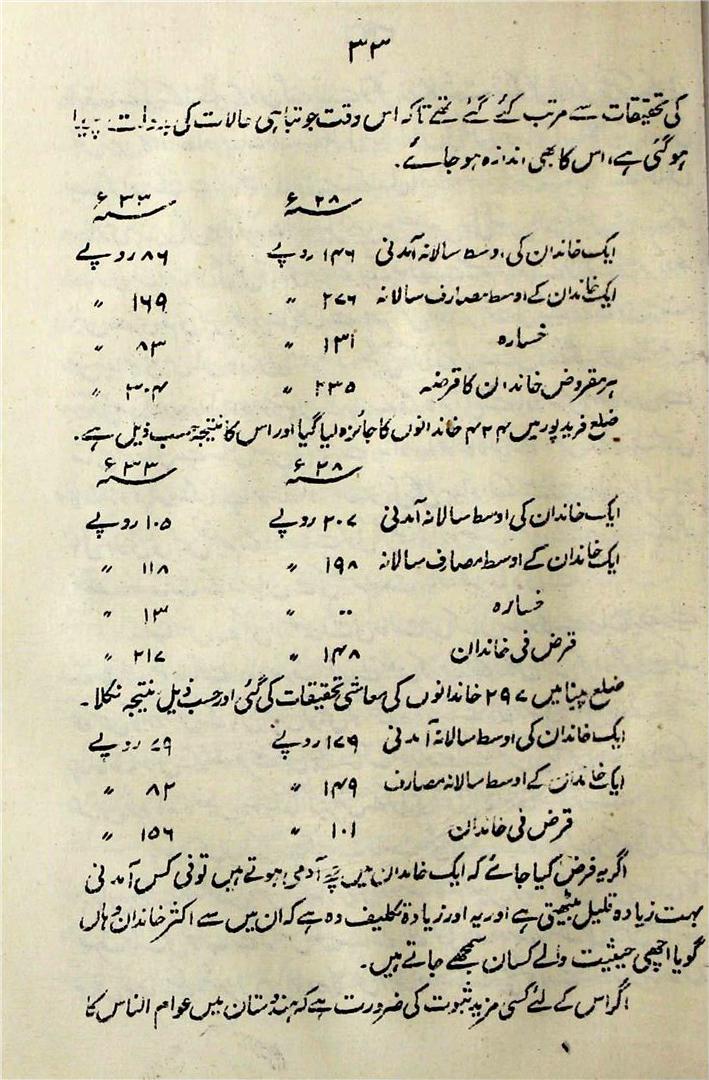 ۳۳
کی تحقیقات سے مرتب کئے گئے تھے تاکہ اس وقت جو تباہی حالات کی بدولت پیدا
ہو گئی ہے، اس کا بھی اندازہ ہو جائے۔
۲۸ء ۳۳ء
ایک خاندان کی اوسط سالانہ آمدنی ۱۴۶ روپے ۸۶ روپے
ایک خاندان کے اوسط مصارف سالانہ ۲۷۶ 〃 ۱۶۹ 〃
خسارہ ۱۳۱ 〃 ۸۳ 〃
ہر مقروض خاندان کا قرضہ ۲۳۵ 〃 ۳۰۴ 〃
ضلع فرید پور میں ۴۲۴ خاندانوں کا جائزہ لیا گیا اور اس کا نتیجہ حسب ذیل ہے۔
۲۸ء ۳۳ء
ایک خاندان کی اوسط سالانہ آمدنی ۲۰۷ روپے ۱۰۵ روپے
ایک خاندان کے اوسط مصارف سالانہ ۱۹۸ 〃 ۱۱۸ 〃
خسارہ ۰۰ 〃 ۱۳ 〃
قرض فی خاندان ۱۴۸ 〃 ۲۱۷ 〃
ضلع پبنا میں ۲۹۷ خاندانوں کی معاشی تحقیقات کی گئی اور حسب ذیل نتیجہ نکلا۔
ایک خاندان کی اوسط سالانہ آمدنی ۱۷۹ روپے ۷۹ روپے
ایک خاندان کے اوسط سالانہ مصارف ۱۴۹ 〃 ۸۲ 〃
قرض فی خاندان ۱۰۱ 〃 ۱۵۶ 〃
اگر یہ فرض کیا جائے کہ ایک خاندان میں چھ آدمی ہوتے ہیں تو فی کس آمدنی
بہت زیادہ قلیل بیٹھتی ہے اور یہ اور زیادہ تکلیف دہ ہے کہ ان میں سے اکثر خاندان وہاں
گویا اچھی حیثیت والے کسان سمجھے جاتے ہیں۔
اگر اس کے لئے کسی مزید ثبوت کی ضرورت ہے کہ ہندوستان میں عوام الناس کا